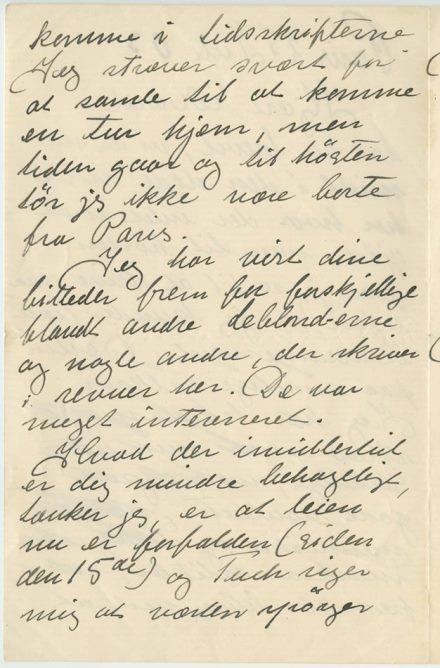 komme i tidsskrifterne
Jeg stræver svært for
at samle til at komme
en tur hjem, men
tiden gaar og til hösten
tör jeg ikke være borte
fra Paris.
Jeg har vist dine
billeder frem for forskjellige
blandt andre deblond-erne
og nogle andre, der skriver
i revuer her. De var
meget interesseret.
Hvad der imidlertid
er dig mindre behageligt,
tænker jeg, er at leien
nu er forfalden (siden
den 15de) og Tuch siger
mig at værten spörger